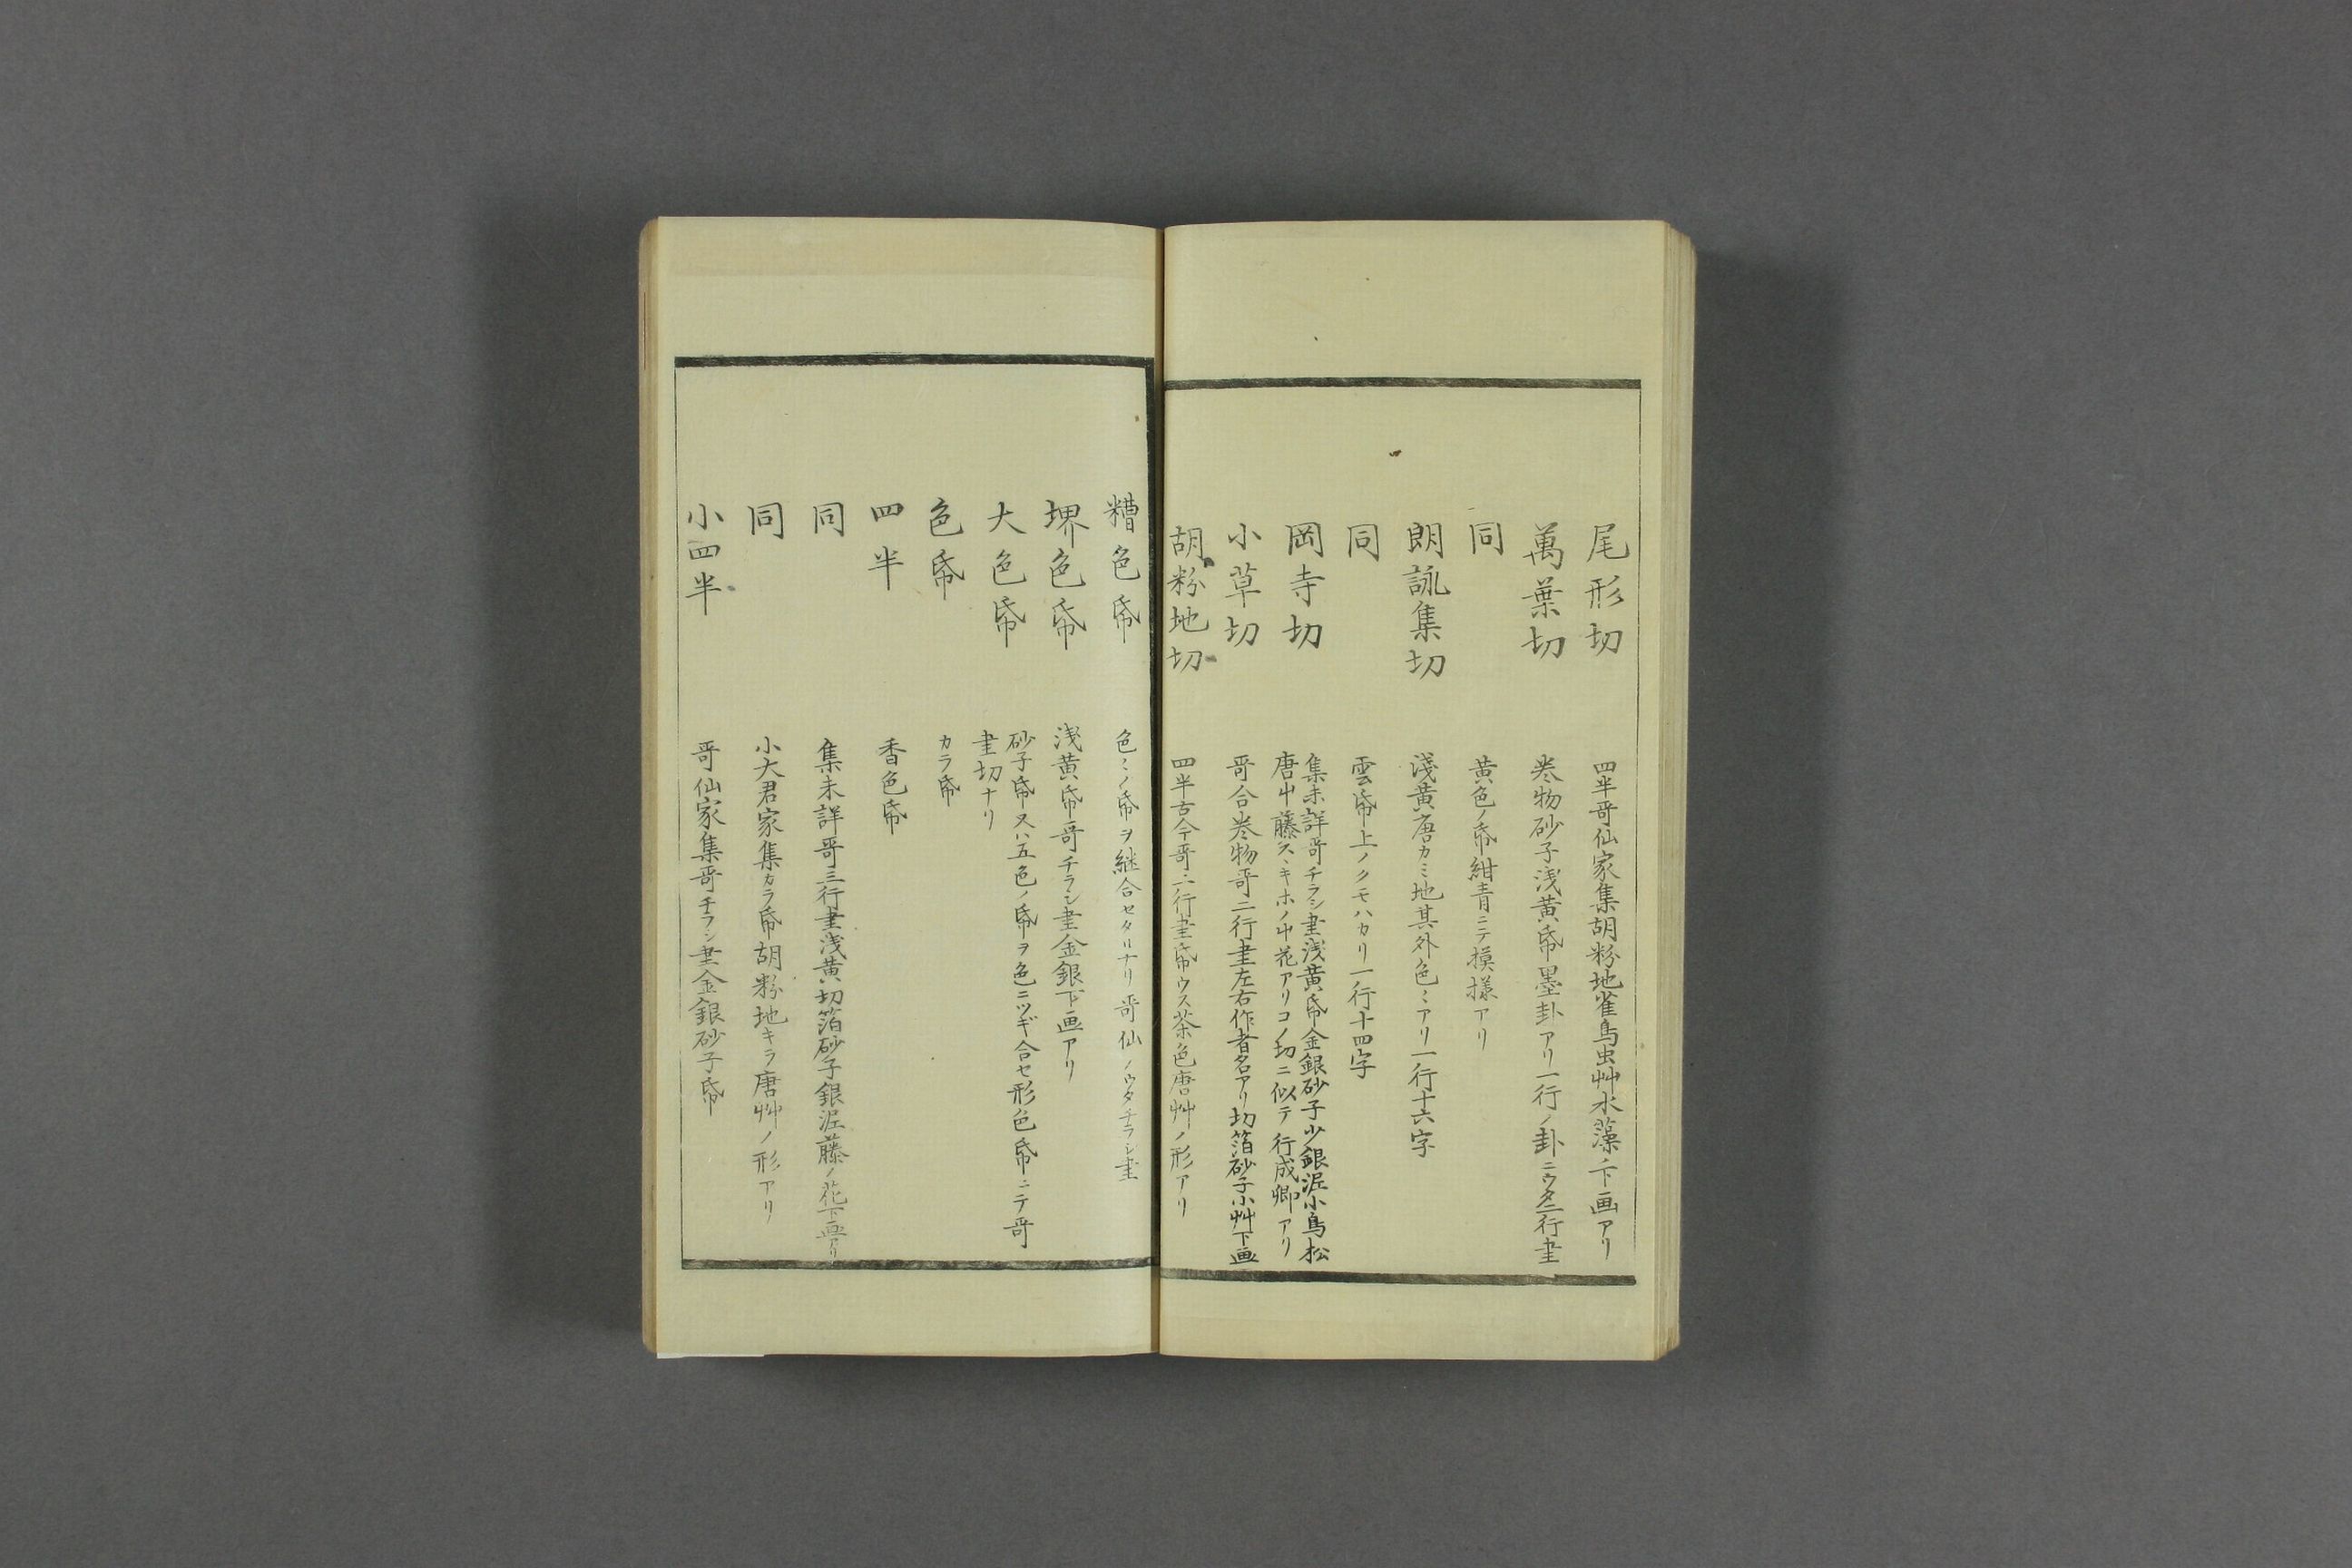 尾形切　四半哥仙家集胡粉地雀鳥虫艸水藻ノ下画アリ
萬葉切　巻物砂子浅黄帋墨卦アリ一行ノ卦ニウタ二行書
同　黄色ノ帋紺青ニテ摸様アリ
朗詠集切　淺黄唐カミ地其外色〻アリ一行十六字
同　雲帋上ノクモハカリ一行十四字
岡寺切　集未詳哥チラシ書浅黄帋金銀砂子少銀泥小鳥松
唐中藤スヽキホノ中花アリコノ切ニ似テ行成卿アリ
小草切　哥合巻物哥二行書左右作者名アリ切箔砂子小艸下画
胡粉地切　四半古今哥二行書帋ウス茶色唐艸ノ形アリ
糟色帋　色〻ノ帋ヲ継合セタルナリ哥仙ノウタチラシ書
堺色帋　浅黄帋哥チラシ書金銀下画アリ
大色帋　砂子帋又ハ五色ノ帋ヲ色ニツギ合セ形色帋ニテ哥
書切ナリ
色帋　カラ帋
四半　香色帋
同　集未詳哥三行書浅黄切箔砂子銀泥藤ノ花下画アリ
同　小大君家集カラ帋胡粉地キラ唐艸ノ形アリ
小四半　哥仙家集哥チラシ書金銀砂子帋